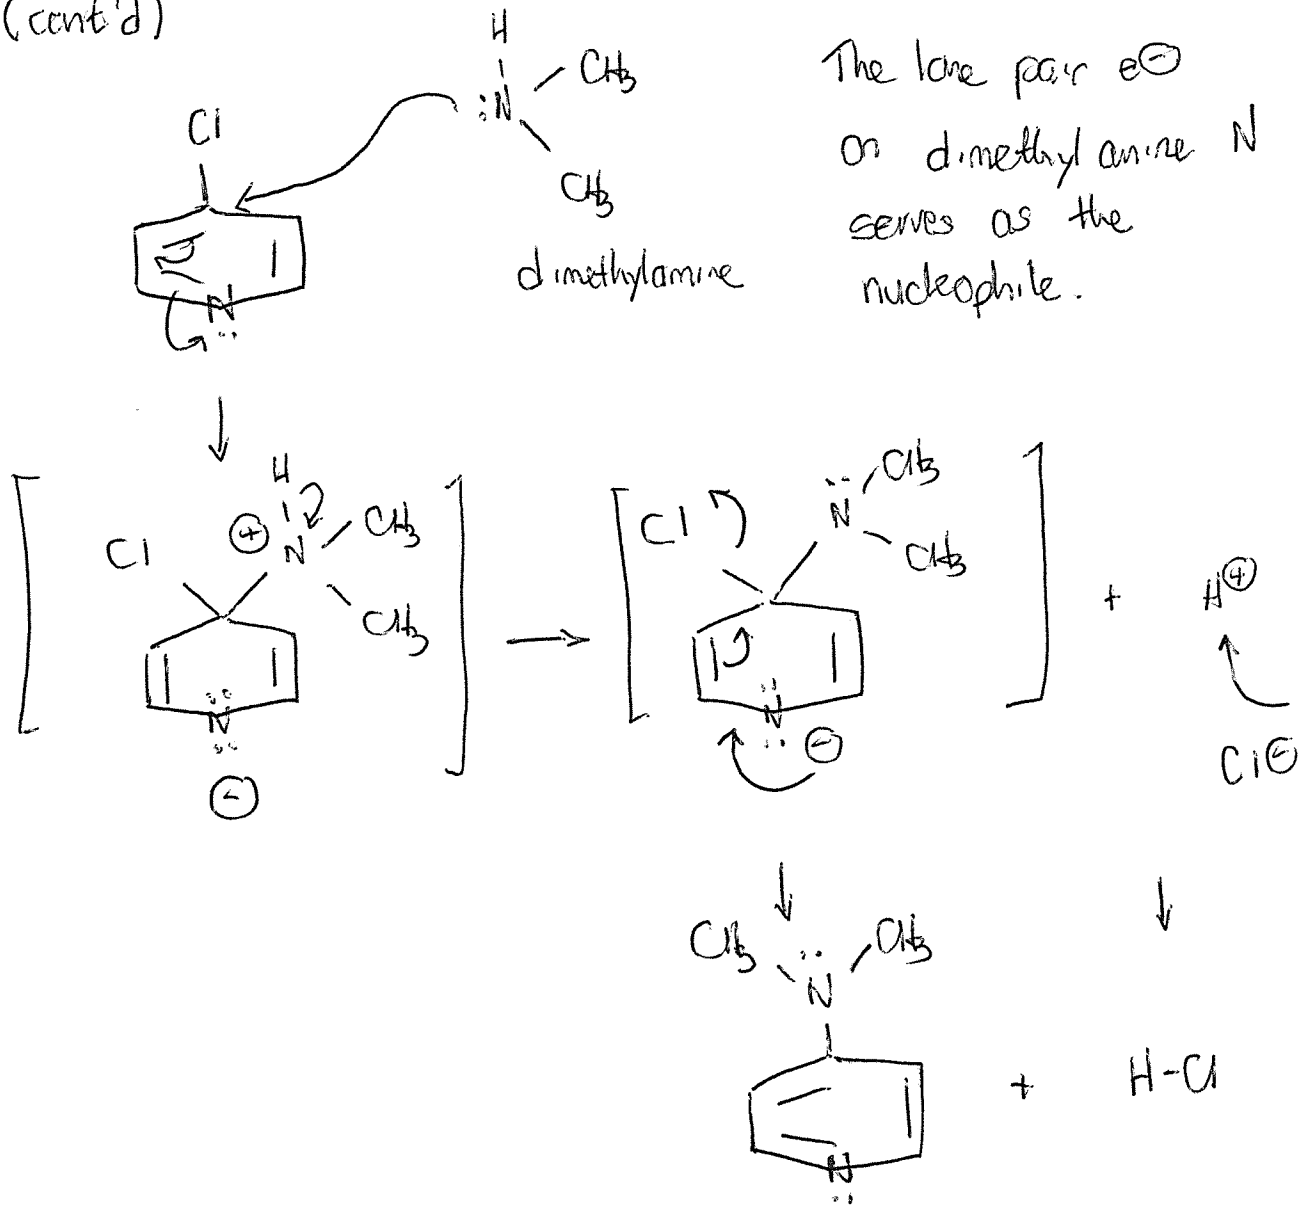 (cont'd)
H
Cl
:N
CH3
CH3
dimethylamine
N
The lone pair e⊖
on dimethylamine N
serves as the
nucleophile.
H
Cl
⊕
N
CH3
CH3
N
⊖
Cl
N
CH3
CH3
N
⊖
+
H⊕
Cl⊖
CH3
CH3
N
N
+
H-Cl